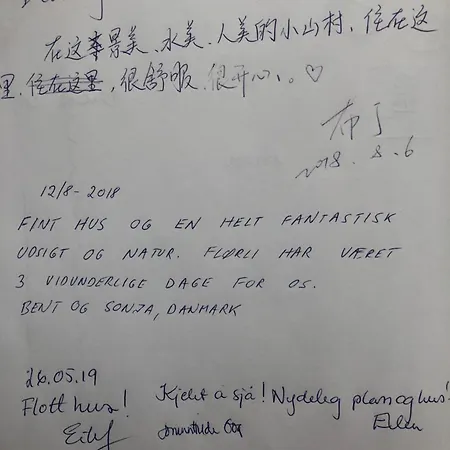 在这景美、水美、人美的小山村，住在这
里，住在这里，很舒暇、很开心。♡
布丁
2018.8.6
12/8-2018
FINT HUS OG EN HELT FANTASTISK
UDSIGT OG NATUR. FLØRLI HAR VÆRET
3 VIDUNDERLIGE DAGE FOR OS.
BENT OG SONJA, DANMARK
26.05.19
Flott hus!
Kjekt å sjå! Nydeleg plass og hus!